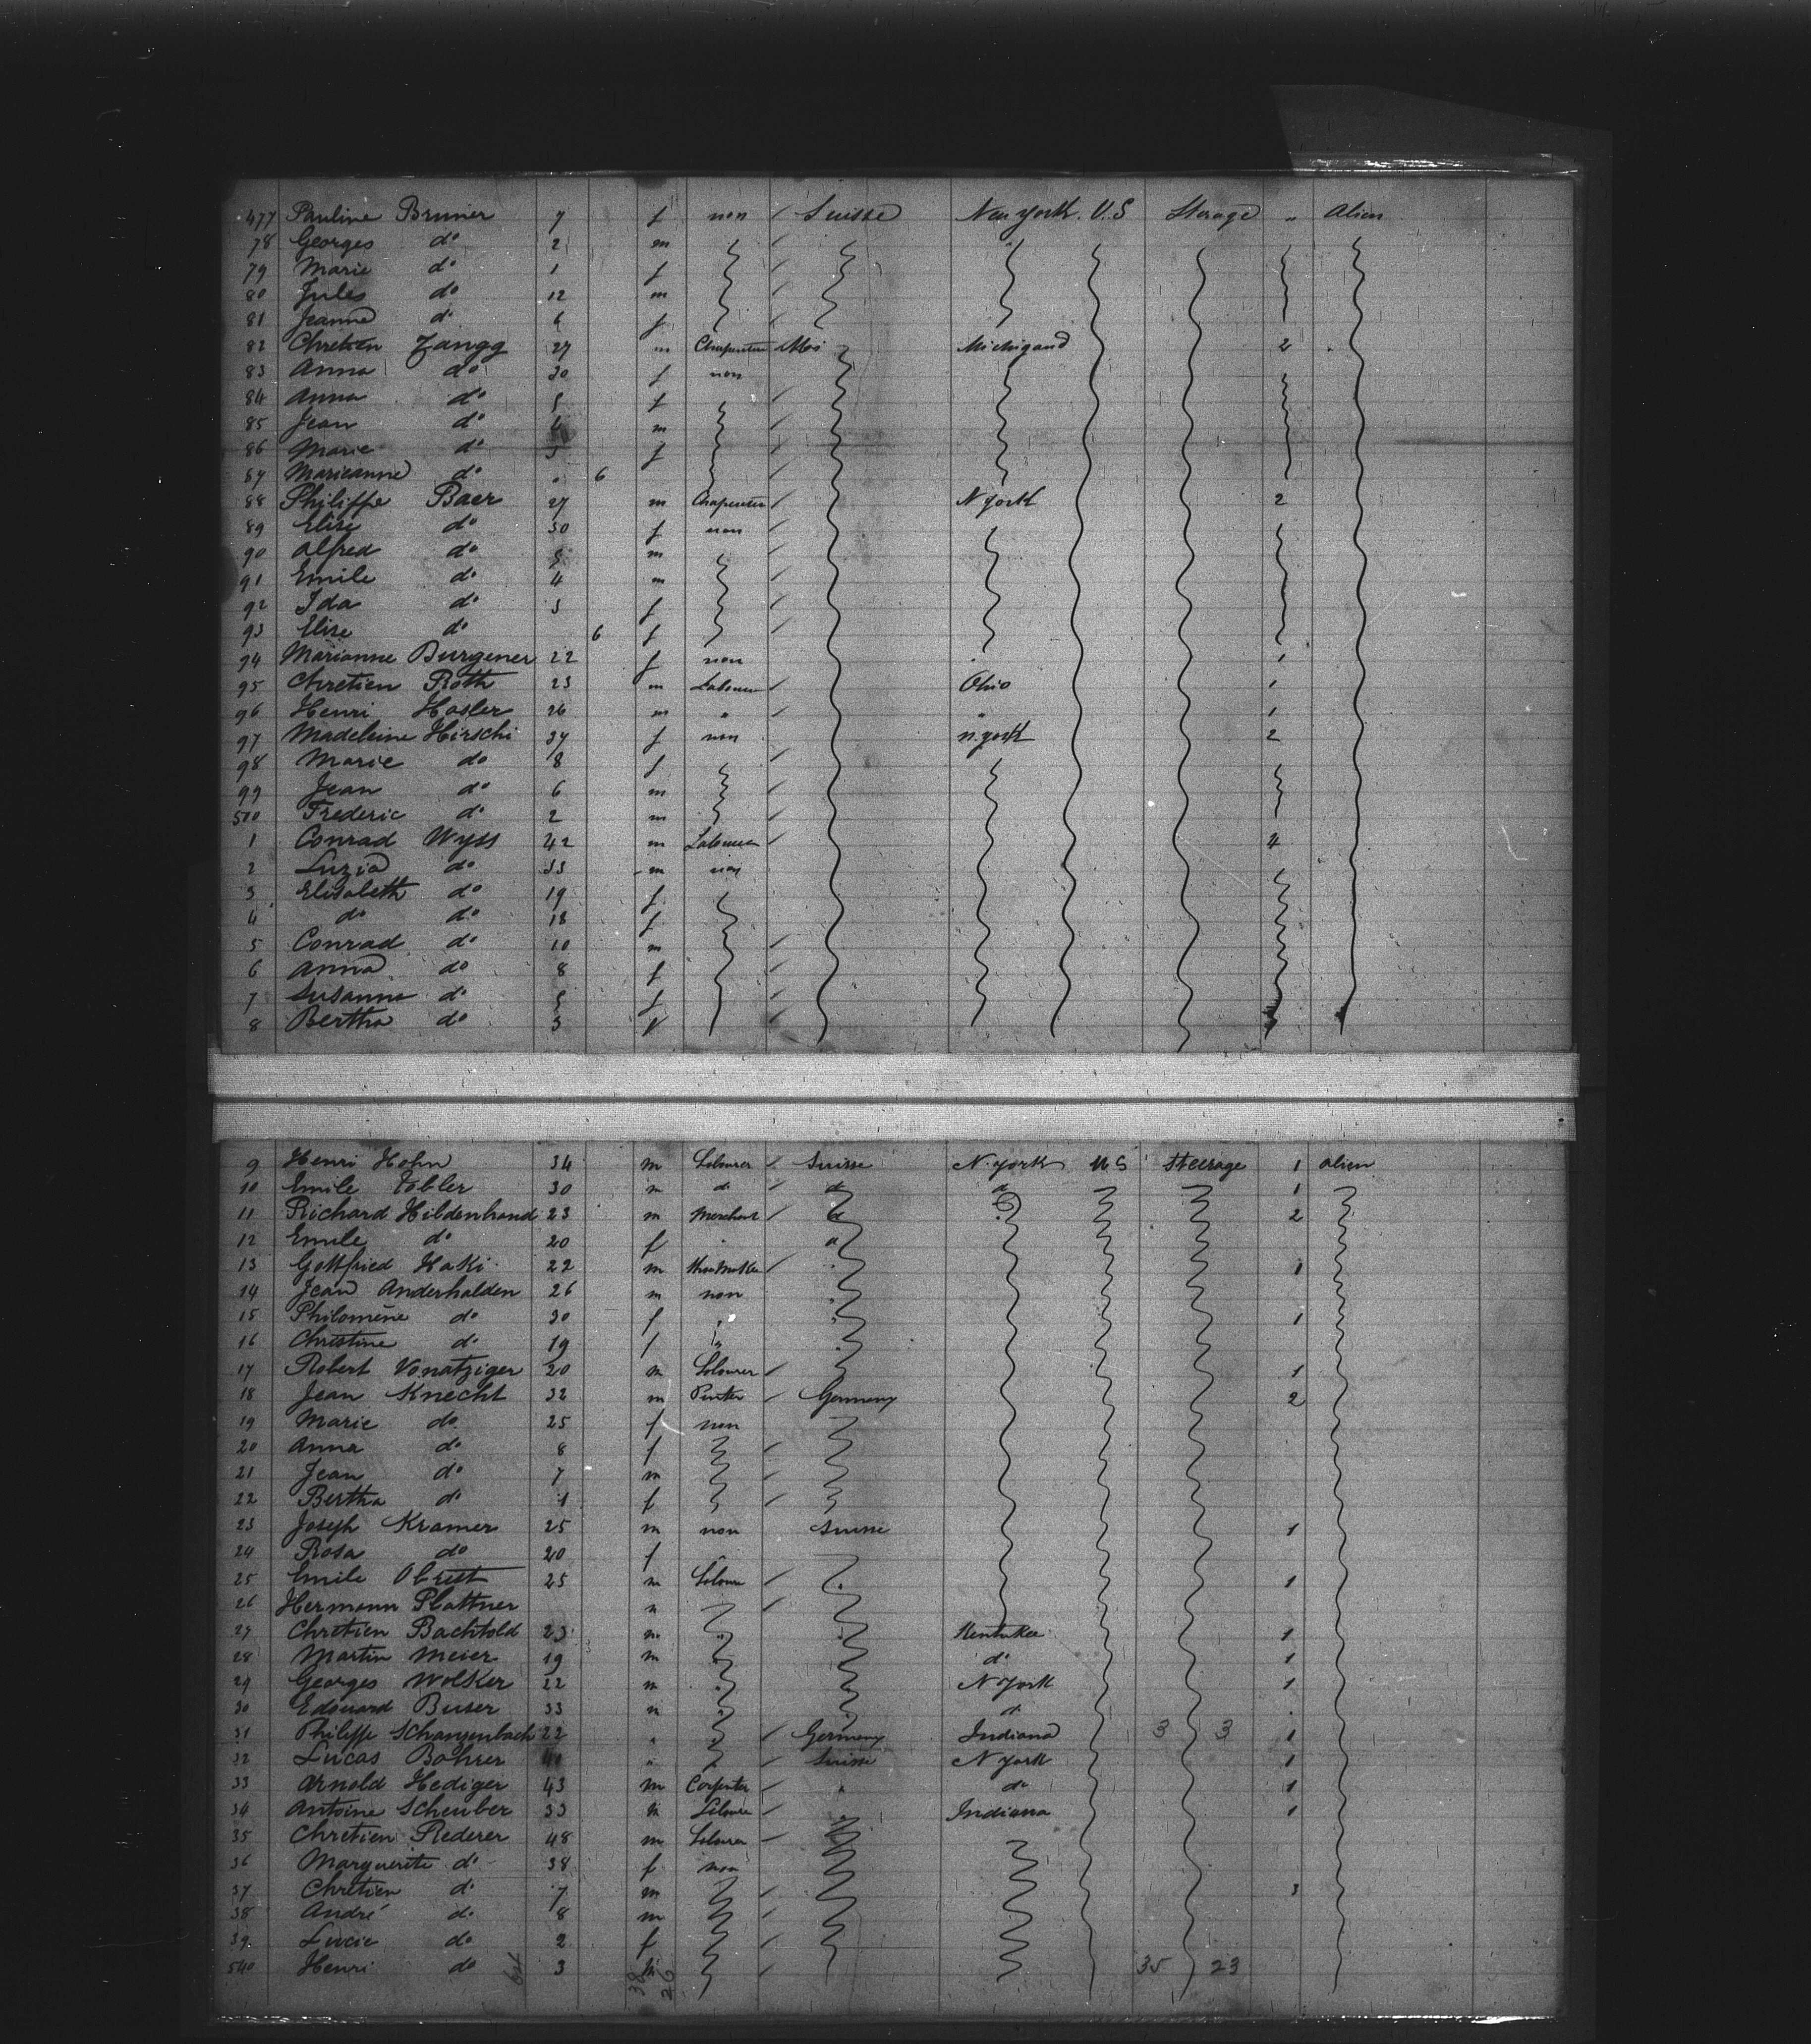 477 Pauline Bruner 7 f non Suisse New york. U.S Sterage " Alien
78 Georges do 2 m
79 Marie do 1 f
80 Jules do 12 m
81 Jeanne do 6 f
82 Chretien Zangg 27 m Chapenter Michigand 2
83 Anna do 30 f non
84 Anna do 5 f
85 Jean do m
86 Marie do 3 f
87 Marieanne do " 6
88 Philippe Baer 27 m Chapenter N york 2
89 Elise do 30 f non
90 Alfred do 5 m
91 Emile do 4 m
92 Ida do 3 f
93 Elise do 6 f
94 Marianne Burgener 22 f non 1
95 Chretien Roth 23 m Labourer Ohio 1
96 Henri Hasler 26 m " " 1
97 Madeleine Hirschi 37 f non n.york 2
98 Marie do 8 f
99 Jean do 6 m
500 Frederic do 2 m
1 Conrad Wyss 42 m Labourer 4
2 Luzia do 33 m non
3 Elisabeth do 19 f
4 do do 18 f
5 Conrad do 10 m
6 Anna do 8 f
7 Susanna do 5 f
8 Bertha do 3 f
9 Henri Hohn 34 m Labourer Suisse N. york US Steerage 1 alien
10 Emile Tobler 30 m d d d 1
11 Richard Hildenbrand 23 m Merchant d 2
12 Emile do 20 f
13 Gottfried Haki 22 m 1
14 Jean Anderhalden 26 m non
15 Philomène do 30 f " 1
16 Christine do 19 f "
17 Robert Vonatziger 20 m Labourer 1
18 Jean Knecht 32 m Germany 2
19 Marie do 25 f non
20 Anna do 8 f
21 Jean do 7 m
22 Bertha do 1 f
23 Joseph Kramer 25 m non Suisse 1
24 Rosa do 20 f
25 Emile Obrist 25 m Laboure 1
26 Hermann Plattner m
27 Chretien Bachtold 23 m Kentukee 1
28 Martin Meier 19 m do 1
29 Georges Wolker 22 m N York 1
30 Edouard Buser 33 m d
31 Philippe Schanzenbach 22 " Germany Indiana 3 3 1
32 Lucas Bohrer " Suisse N York 1
33 Arnold Hediger 43 m Carpenter " do 1
34 Antoine Scheuber 33 m Laboure " Indiana 1
35 Chretien Rederer 48 m Labourer
36 Marguerite do 38 f non
37 Chretien d 7 m 3
38 André do 8 m
39 Lucie do 2 f
540 Henri do 3 m 35 23
38
26